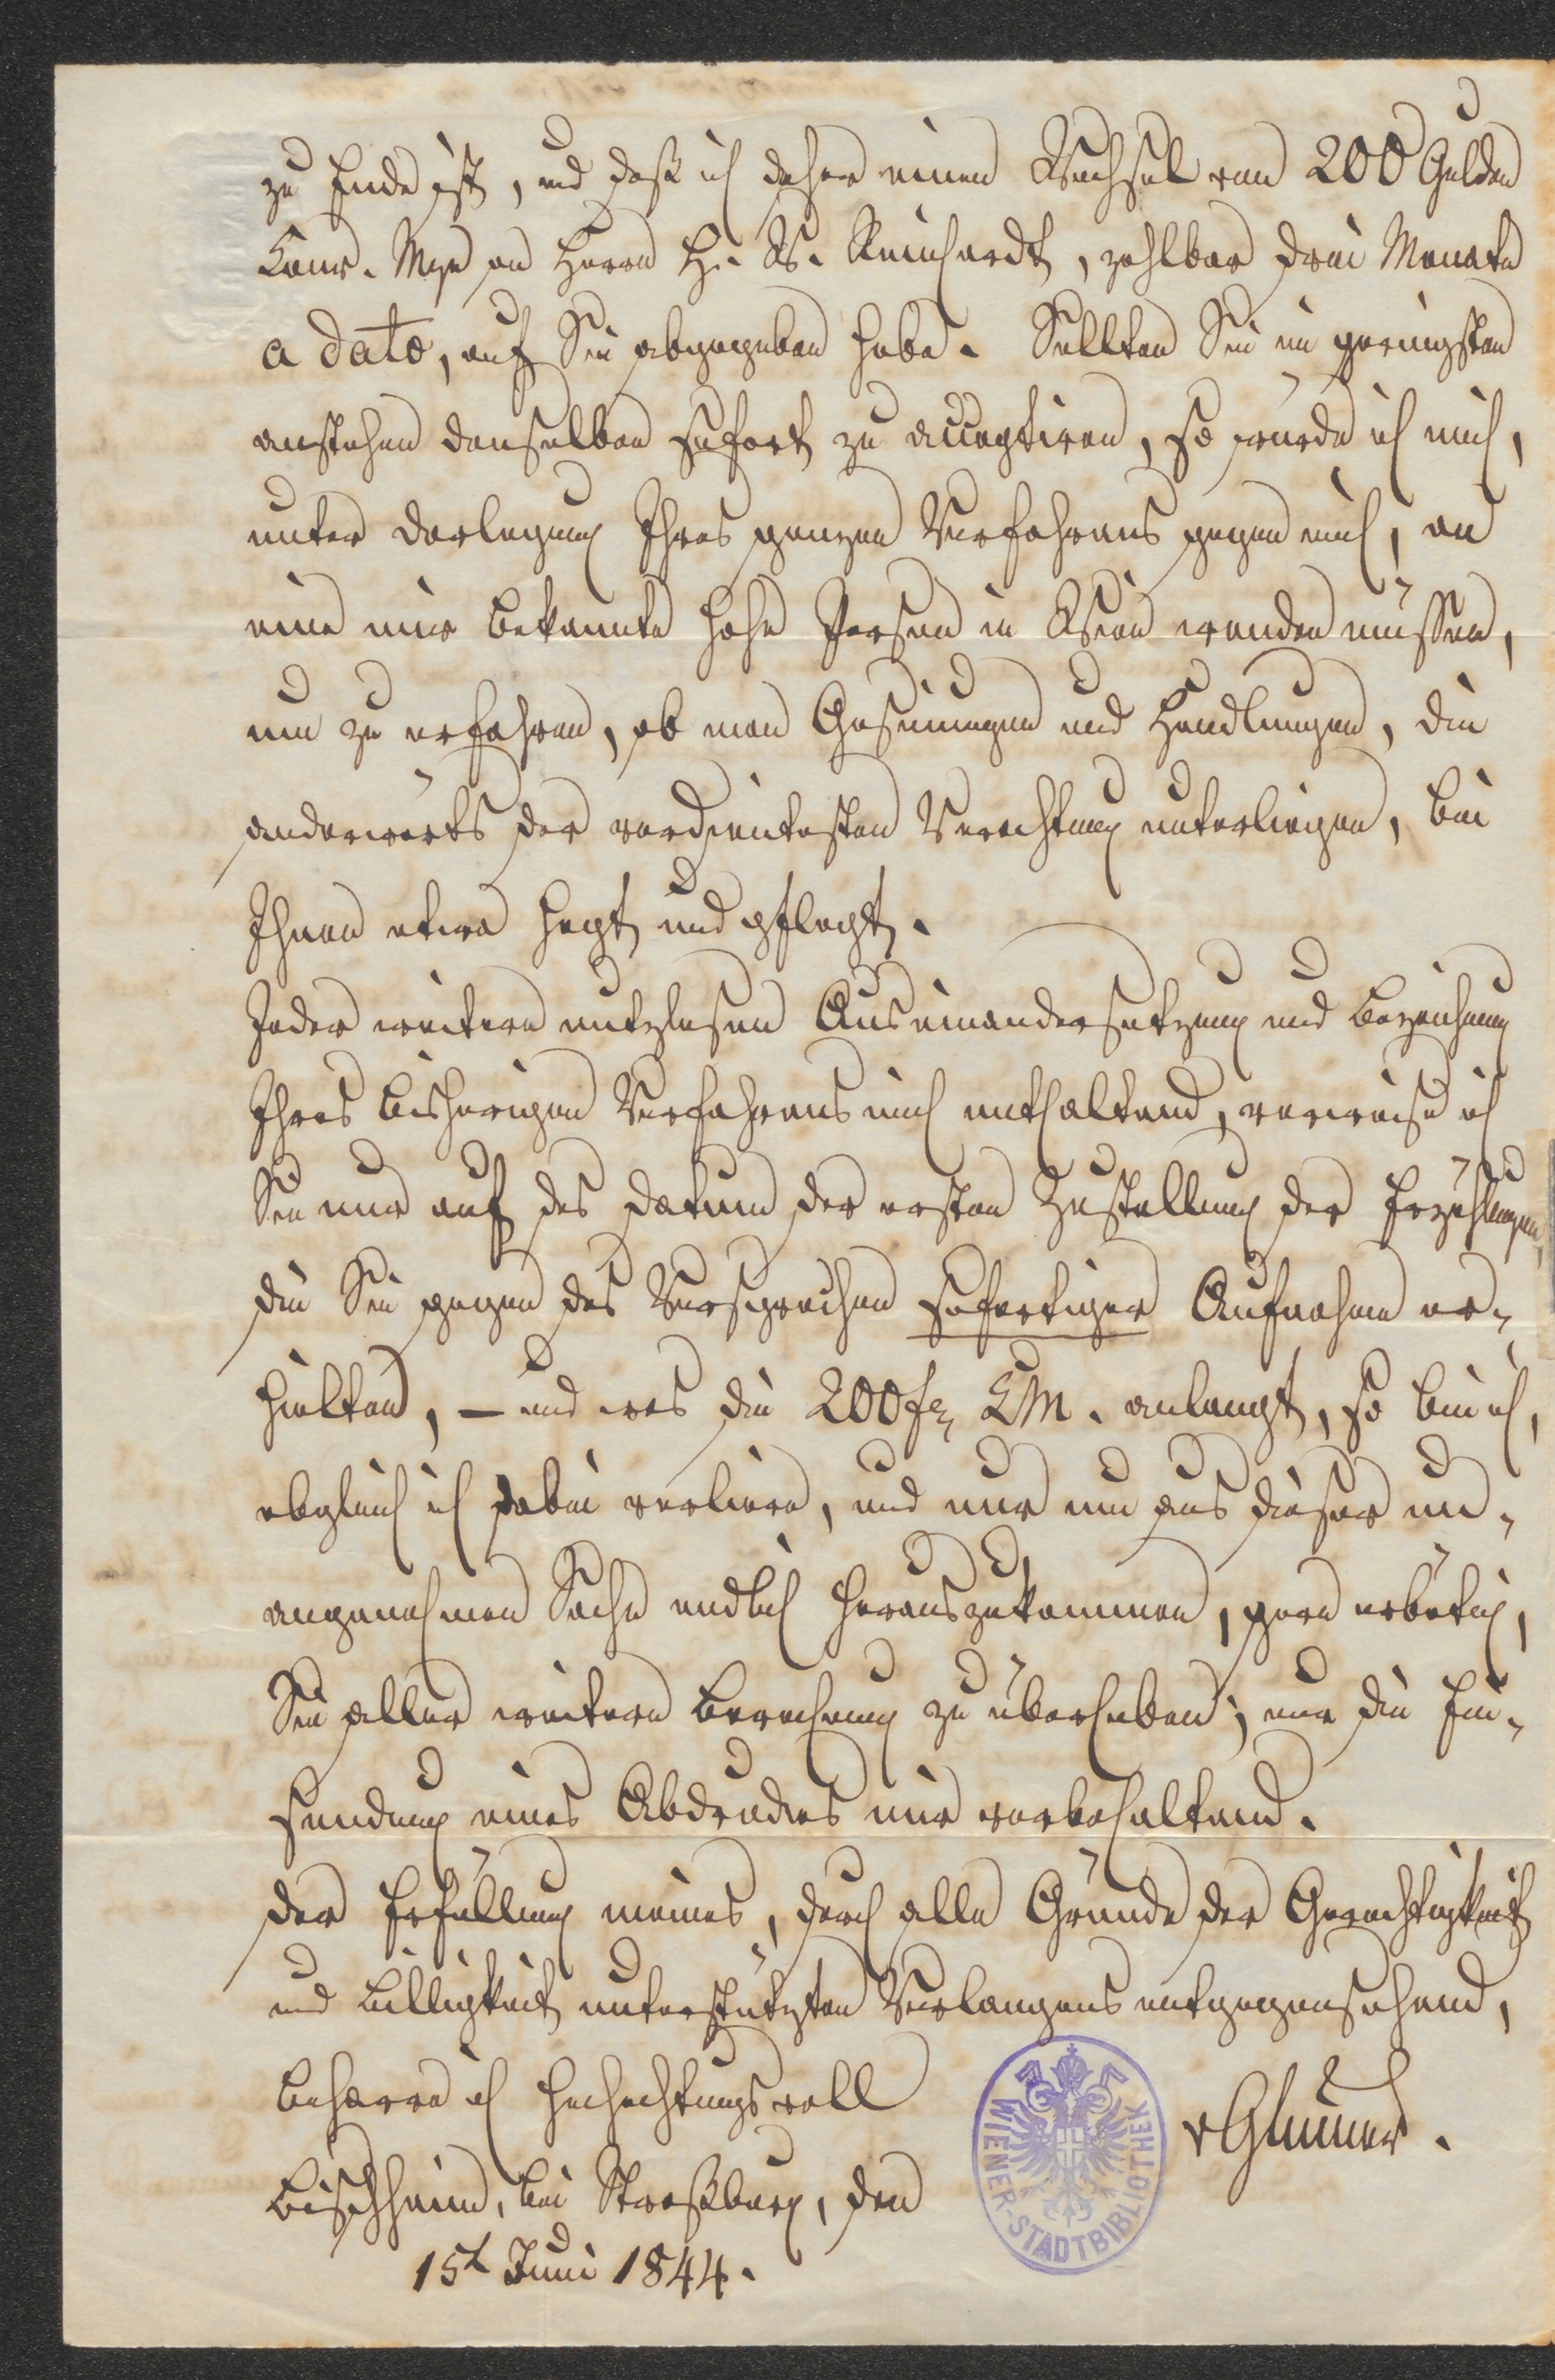 zu Ende ist, und daß ich daher einen Wechsel von 200 Gulden
Conv. Mze an Herrn H. W. Reinhardt, zahlbar drei Monate
a dato, auf Sie abgegeben habe. Sollten Sie im geringsten
anstehen denselben sofort zu acceptiren, so würde ich mich,
unter Darlegung Ihres ganzen Verfahrens gegen mich, an
eine mir bekannte hohe Person in Wien wenden müssen,
um zu erfahren, ob man Gesinungen und Handlungen, die
anderwärts der verdientesten Verachtung unterliegen, bei
Ihnen etwa hegt und pflegt.
Jeder weitern nutzlosen Auseinandersetzung und Bezeihung
Ihres bisherigen Verfahrens mich enthaltend, verweise ich
Sie nur auf das Datum der ersten Zustellung der Erzählungen,
die Sie gegen das Versprechen sofortiger Aufnahme er-
hielten, – und was die 200 fr CM. anlangt, so bin ich,
obgleich ich dabei verliere, und nur um aus dieser un-
angenehmen Sache endlich herauszukommen, gern erbötig,
Sie aller weitern Berechnung zu überheben; nur die Ein-
sendung eines Abdruckes mir vorbehaltend.
Der Erfüllung meines, durch alle Gründe der Gerechtigkeit
und Billigkeit unterstützten Verlangens entgegensehend,
beharre ich hochachtungsvoll
vGlümer.
Bischheim, bei Straßburg, den
15t Juni 1844.
WIENER-STADTBIBLIOTHEK